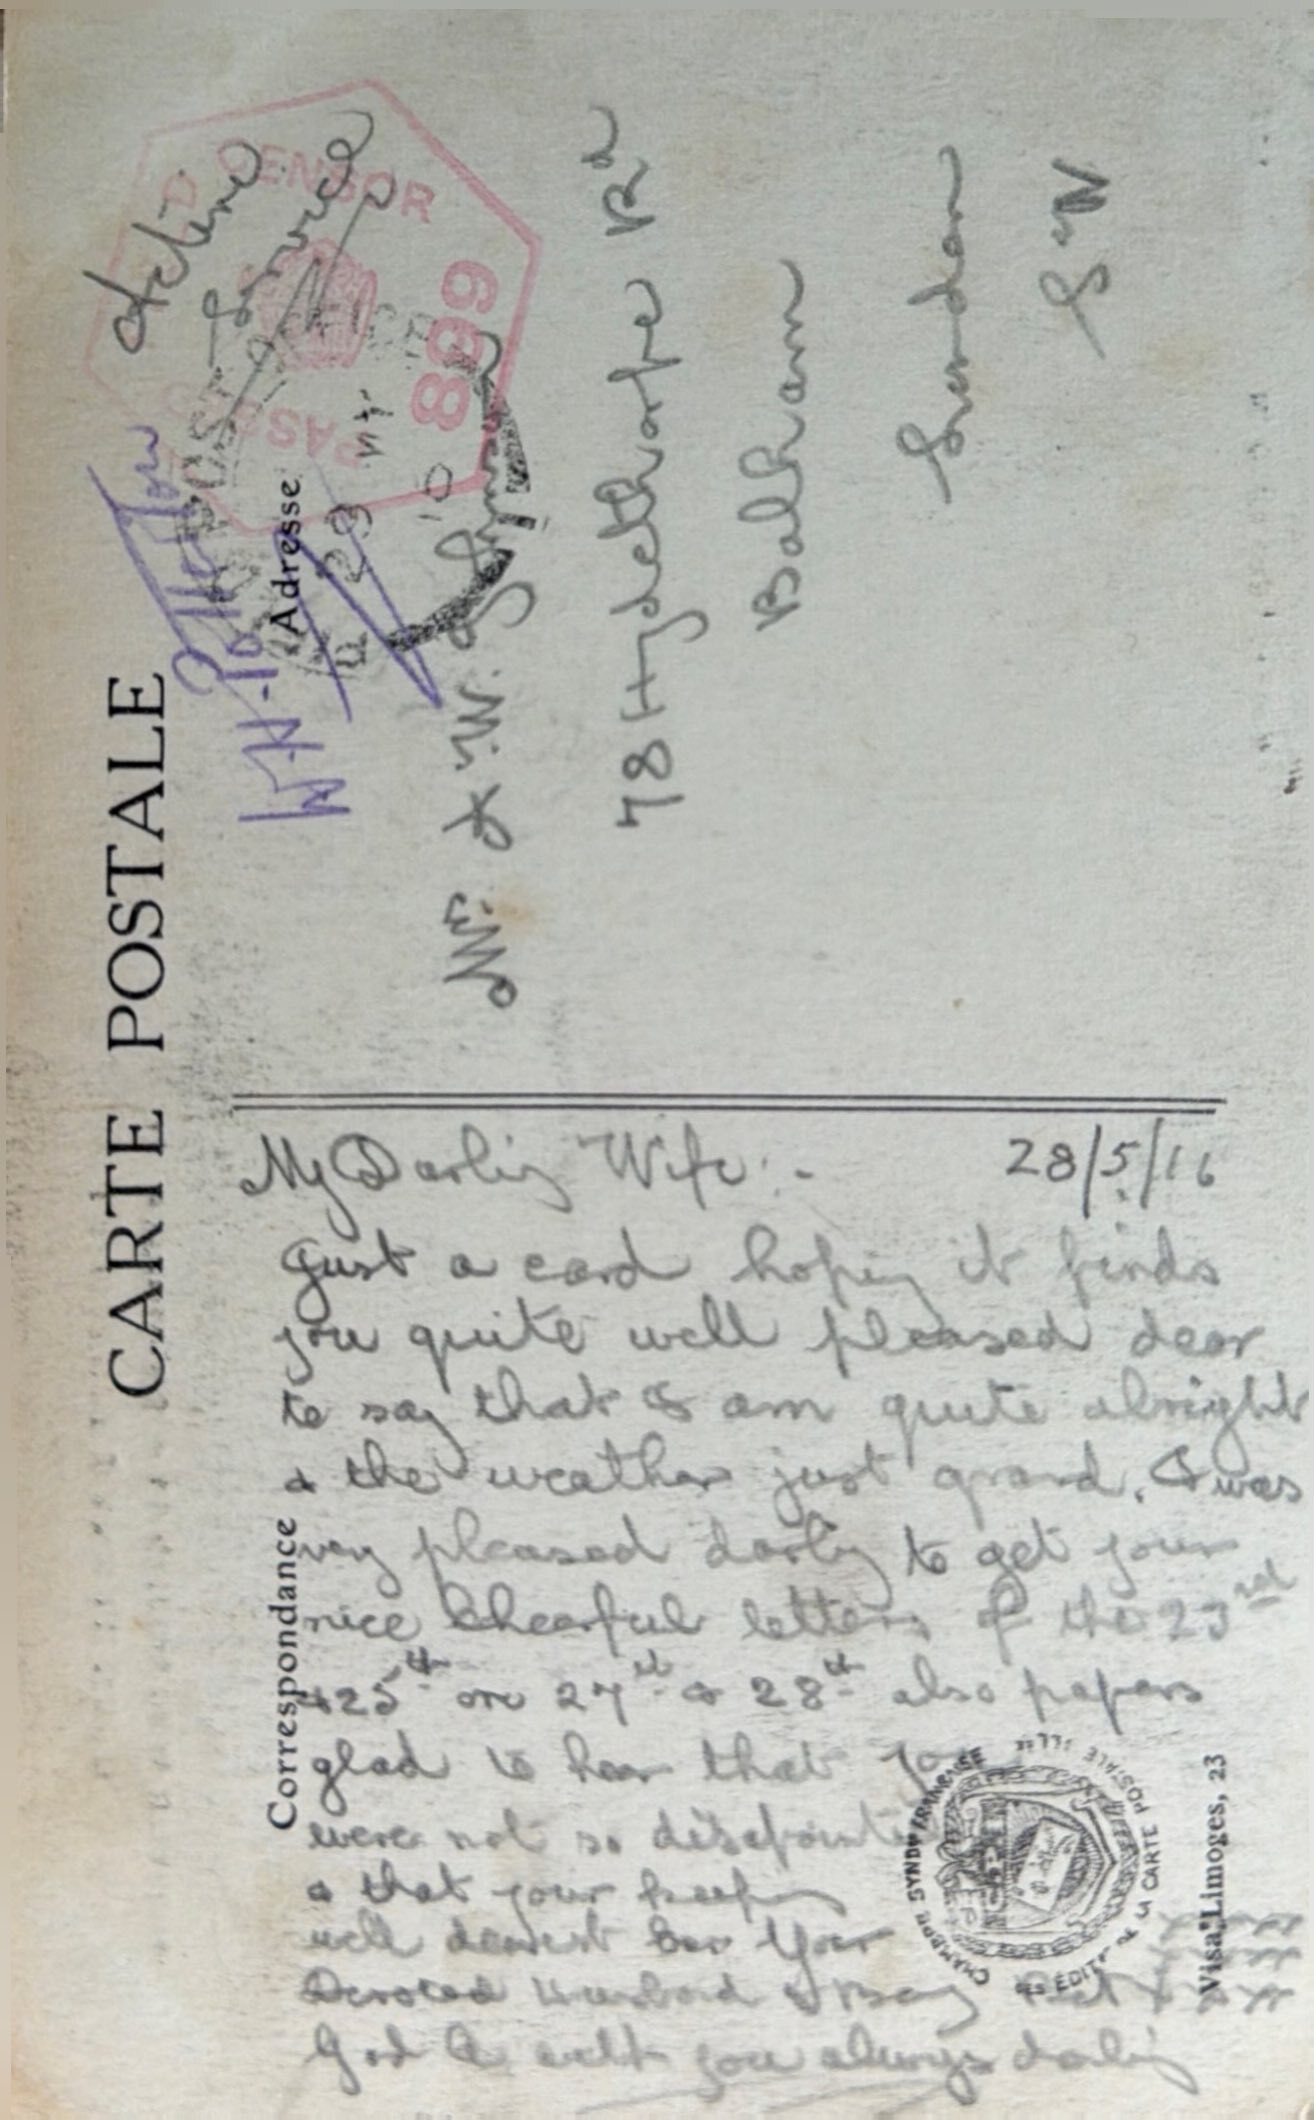 CARTE POSTALE
Correspondance
Adresse
Active
Service
PASSED CENSOR
899
FIELD POST OFFICE
78 Hydethorpe Rd
Balham
London
S.W
My Darling Wife :-
28/5/16
Just a card hoping it finds
you quite well pleased dear
to say that I am quite alright
& the weather just grand. I was
very pleased darling to get your
nice cheerful letters of the 23rd
& 25th on 27th & 28th also papers
glad to hear that you
were not so disapointed
& that your keeping
well dearest Your
Devoted Husband & Boy
God be with you always darling
CHAMBRE SYNDle FRANÇAISE
DE LA CARTE POSTALE ILLée
Visa Limoges, 23